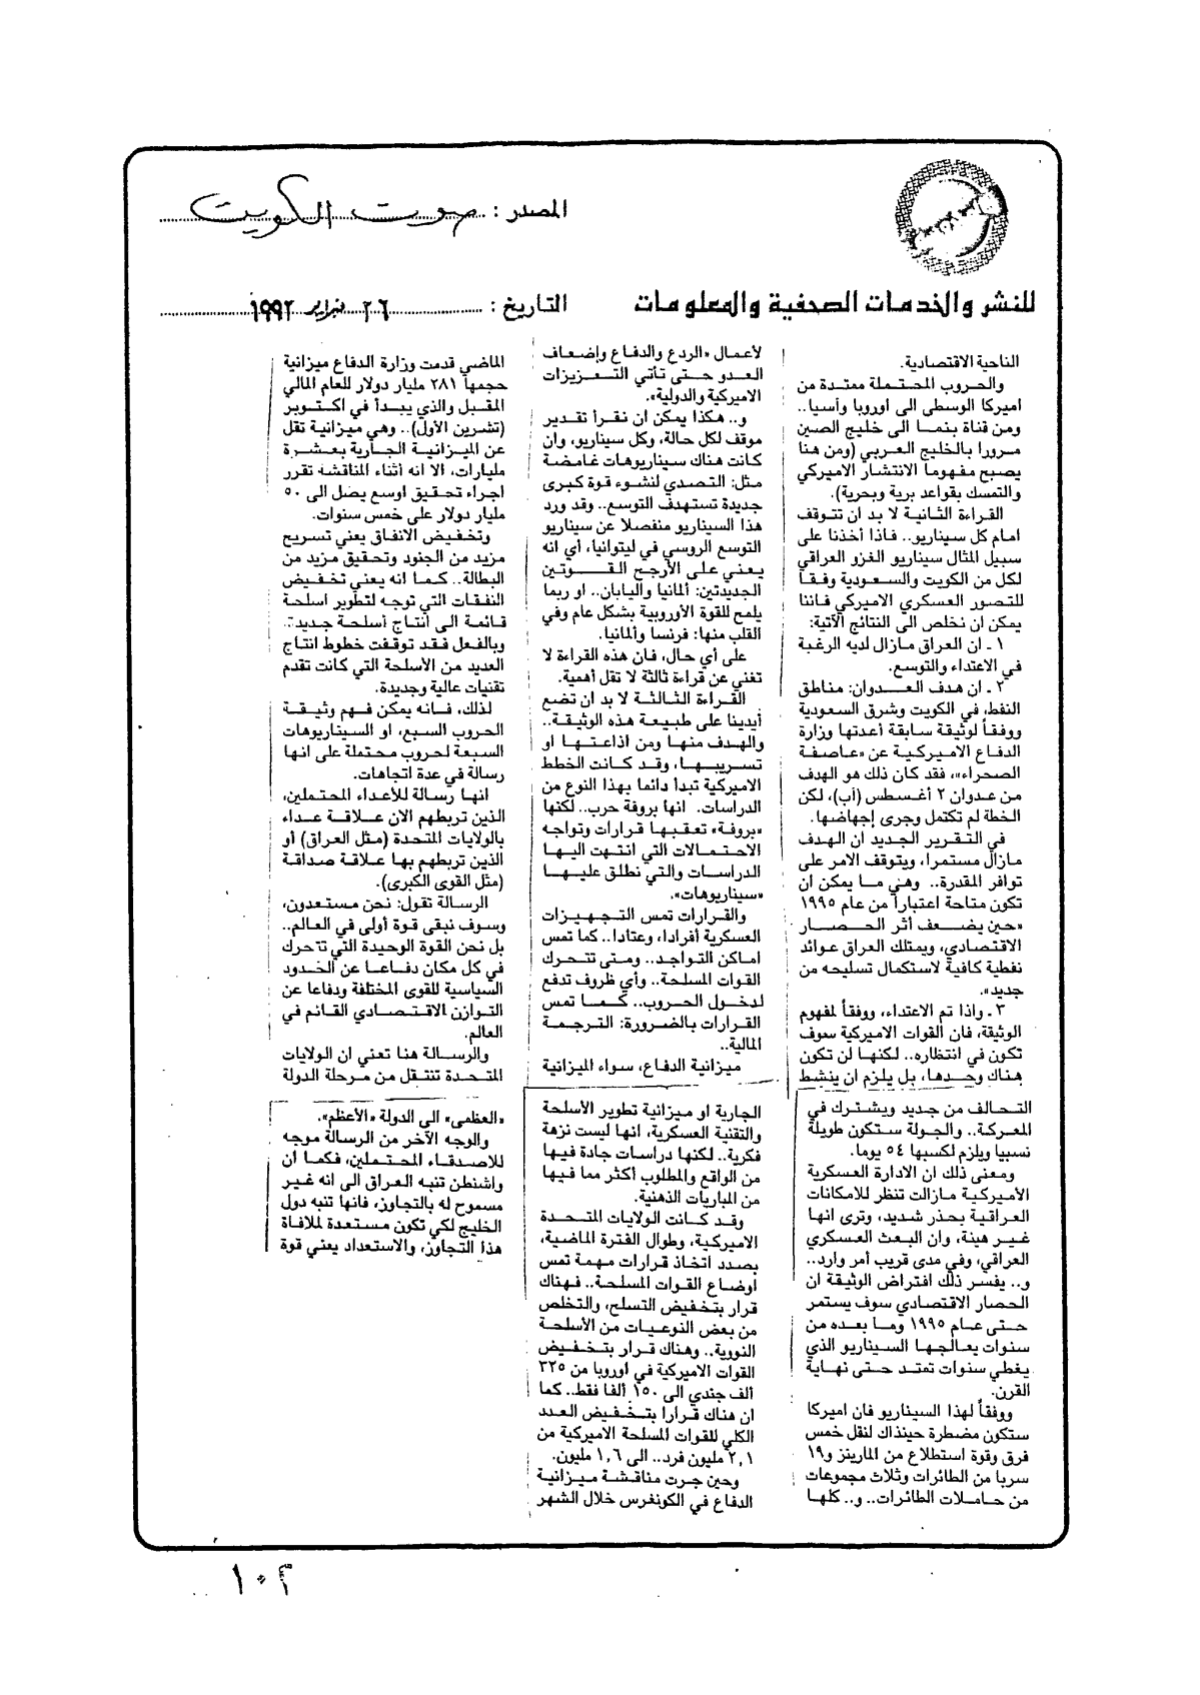 المصدر : صوت الكويت
للنشر والخدمات الصحفية والمعلومات
التاريخ : ٢٦ فبراير ١٩٩٢
الناحية الاقتصادية.
والحروب المحتملة ممتدة من
اميركا الوسطى الى اوروبا وآسيا..
ومن قناة بنما الى خليج الصين
مرورا بالخليج العربي (ومن هنا
يصبح مفهوما الانتشار الاميركي
والتمسك بقواعد برية وبحرية).
القراءة الثانية لا بد ان تتوقف
امام كل سيناريو.. فاذا أخذنا على
سبيل المثال سيناريو الغزو العراقي
لكل من الكويت والسعودية وفقا
للتصور العسكري الاميركي فاننا
يمكن ان نخلص الى النتائج الآتية:
١ ـ ان العراق مازال لديه الرغبة
في الاعتداء والتوسع.
٢ ـ ان هدف العدوان: مناطق
النفط، في الكويت وشرق السعودية
ووفقاً لوثيقة سابقة أعدتها وزارة
الدفاع الاميركية عن «عاصفة
الصحراء»، فقد كان ذلك هو الهدف
من عدوان ٢ أغسطس (آب)، لكن
الخطة لم تكتمل وجرى إجهاضها.
في التقرير الجديد ان الهدف
مازال مستمرا، ويتوقف الامر على
توافر المقدرة.. وهي ما يمكن ان
تكون متاحة اعتباراً من عام ١٩٩٥
«حين يضعف أثر الحصار
الاقتصادي، ويمتلك العراق عوائد
نفطية كافية لاستكمال تسليحه من
جديد».
٣ ـ واذا تم الاعتداء، ووفقاً لمفهوم
الوثيقة، فان القوات الاميركية سوف
تكون في انتظاره.. لكنها لن تكون
هناك وحدها، بل يلزم ان ينشط
التحالف من جديد ويشترك في
المعركة.. والجولة ستكون طويلة
نسبيا ويلزم لكسبها ٥٤ يوما.
ومعنى ذلك ان الادارة العسكرية
الأميركية مازالت تنظر للامكانات
العراقية بحذر شديد، وترى انها
غير هينة، وان البعث العسكري
العراقي، وفي مدى قريب أمر وارد..
و.. يفسر ذلك افتراض الوثيقة ان
الحصار الاقتصادي سوف يستمر
حتى عام ١٩٩٥ وما بعده من
سنوات يعالجها السيناريو الذي
يغطي سنوات تمتد حتى نهاية
القرن.
ووفقاً لهذا السيناريو فان اميركا
ستكون مضطرة حينذاك لنقل خمس
فرق وقوة استطلاع من المارينز و١٩
سربا من الطائرات وثلاث مجموعات
من حاملات الطائرات.. و.. كلها
لأعمال «الردع والدفاع وإضعاف
العدو حتى تأتي التعزيزات
الاميركية والدولية».
و.. هكذا يمكن ان نقرأ تقدير
موقف لكل حالة، وكل سيناريو، وان
كانت هناك سيناريوهات غامضة
مثل: التصدي لنشوء قوة كبرى
جديدة تستهدف التوسع.. وقد ورد
هذا السيناريو منفصلا عن سيناريو
التوسع الروسي في ليتوانيا، أي انه
يعني على الأرجح القوتين
الجديدتين: ألمانيا واليابان.. او ربما
يلمح للقوة الأوروبية بشكل عام وفي
القلب منها: فرنسا وألمانيا.
على أي حال، فان هذه القراءة لا
تغني عن قراءة ثالثة لا تقل أهمية.
القراءة الثالثة لا بد ان تضع
أيدينا على طبيعة هذه الوثيقة..
والهدف منها ومن اذاعتها او
تسريبها، وقد كانت الخطط
الاميركية تبدأ دائما بهذا النوع من
الدراسات. انها بروفة حرب.. لكنها
«بروفة» تعقبها قرارات وتواجه
الاحتمالات التي انتهت اليها
الدراسات والتي نطلق عليها
«سيناريوهات».
والقرارات تمس التجهيزات
العسكرية أفرادا، وعتادا.. كما تمس
اماكن التواجد.. ومتى تتحرك
القوات المسلحة.. وأي ظروف تدفع
لدخول الحروب.. كما تمس
القرارات بالضرورة: الترجمة
المالية..
ميزانية الدفاع، سواء الميزانية
الجارية او ميزانية تطوير الأسلحة
والتقنية العسكرية، انها ليست نزهة
فكرية.. لكنها دراسات جادة فيها
من الواقع والمطلوب أكثر مما فيها
من المباريات الذهنية.
وقد كانت الولايات المتحدة
الاميركية، وطوال الفترة الماضية،
بصدد اتخاذ قرارات مهمة تمس
أوضاع القوات المسلحة.. فهناك
قرار بتخفيض التسلح، والتخلص
من بعض النوعيات من الأسلحة
النووية.. وهناك قرار بتخفيض
القوات الاميركية في أوروبا من ٣٢٥
ألف جندي الى ١٥٠ ألفا فقط.. كما
ان هناك قرارا بتخفيض العدد
الكلي للقوات المسلحة الاميركية من
٢,١ مليون فرد.. الى ١,٦ مليون.
وحين جرت مناقشة ميزانية
الدفاع في الكونغرس خلال الشهر
الماضي قدمت وزارة الدفاع ميزانية
حجمها ٢٨١ مليار دولار للعام المالي
المقبل والذي يبدأ في اكتوبر
(تشرين الأول).. وهي ميزانية تقل
عن الميزانية الجارية بعشرة
مليارات، الا انه أثناء المناقشة تقرر
اجراء تحقيق اوسع يصل الى ٥٠
مليار دولار على خمس سنوات.
وتخفيض الانفاق يعني تسريح
مزيد من الجنود وتحقيق مزيد من
البطالة.. كما انه يعني تخفيض
النفقات التي توجه لتطوير اسلحة
قائمة الى انتاج أسلحة جديدة.
وبالفعل فقد توقفت خطوط انتاج
العديد من الأسلحة التي كانت تقدم
تقنيات عالية وجديدة.
لذلك، فانه يمكن فهم وثيقة
الحروب السبع، او السيناريوهات
السبعة لحروب محتملة على انها
رسالة في عدة اتجاهات.
انها رسالة للأعداء المحتملين،
الذين تربطهم الان علاقة عداء
بالولايات المتحدة (مثل العراق) أو
الذين تربطهم بها علاقة صداقة
(مثل القوى الكبرى).
الرسالة تقول: نحن مستعدون،
وسوف نبقى قوة أولى في العالم..
بل نحن القوة الوحيدة التي تتحرك
في كل مكان دفاعا عن الحدود
السياسية للقوى المختلفة ودفاعا عن
التوازن الاقتصادي القائم في
العالم.
والرسالة هنا تعني ان الولايات
المتحدة تنتقل من مرحلة الدولة
«العظمى» الى الدولة «الأعظم».
والوجه الآخر من الرسالة موجه
للاصدقاء المحتملين، فكما ان
واشنطن تنبه العراق الى انه غير
مسموح له بالتجاوز، فانها تنبه دول
الخليج لكي تكون مستعدة لملاقاة
هذا التجاوز، والاستعداد يعني قوة
١٠٢